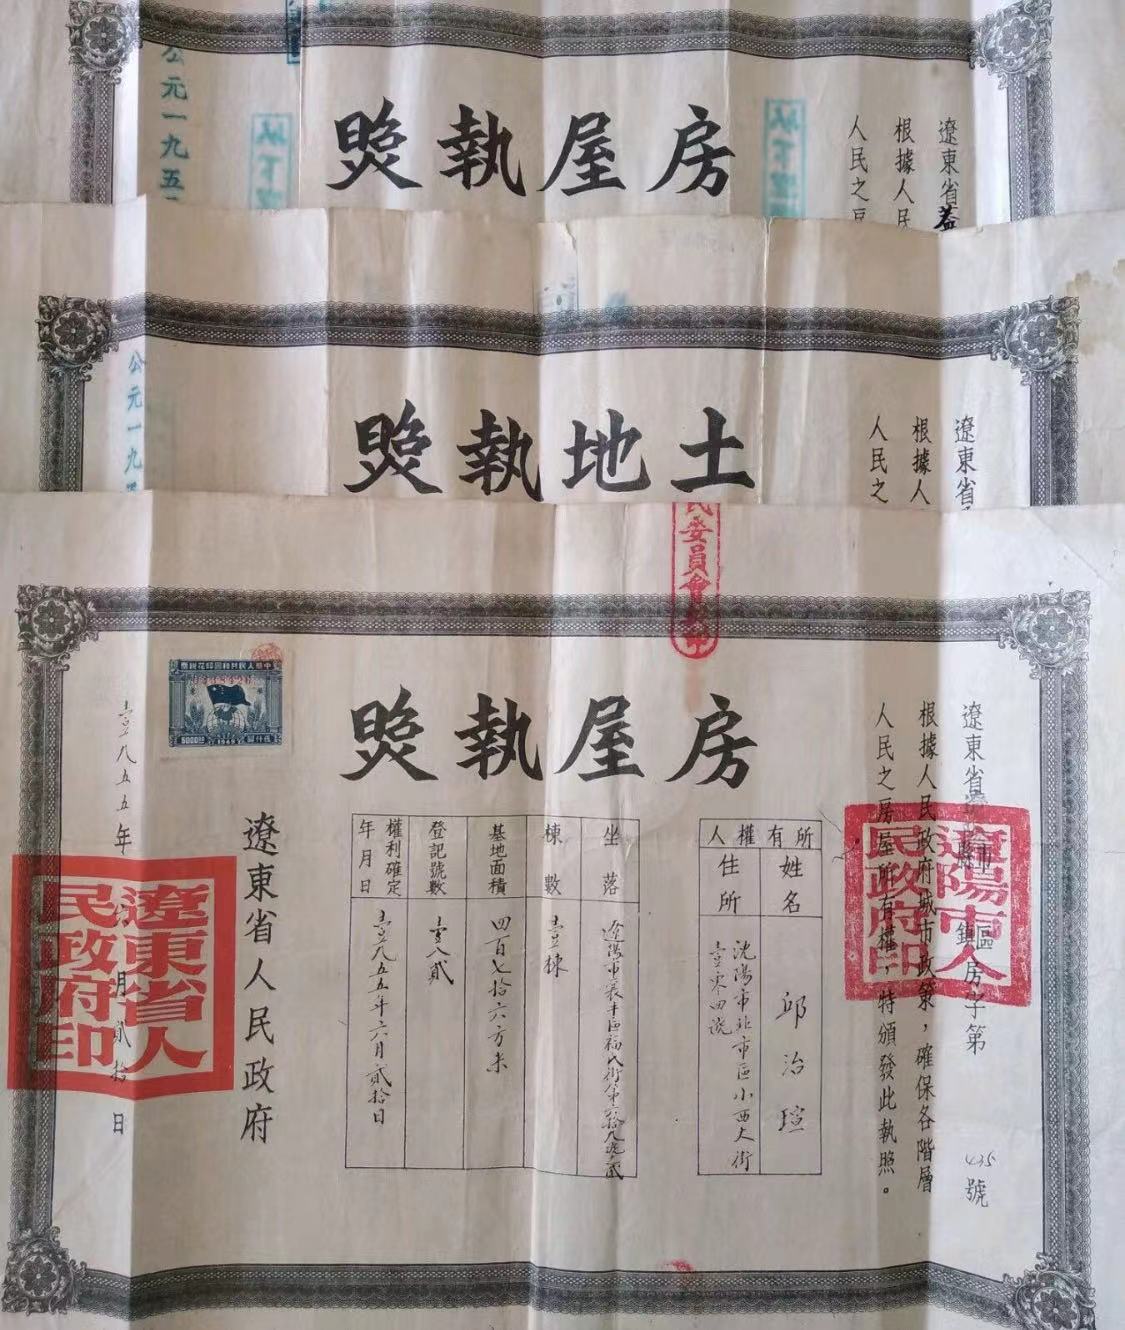 房屋執照
遼東省蓋
根據人民
人民之
公元一九五
土地執照
遼東省
根據人
人民之
公元一九
民委員會
房屋執照
遼東省
市
縣
區
鎮
房字第
435號
根據人民政府城市政策，確保各階層
人民之房屋所有權，特頒發此執照。
遼陽市人民政府印
所有權人
姓名
邱治瑄
住所
沈陽市北市區小西大街
壹零四號
坐落
棟數
壹棟
基地面積
四百七拾六方米
登記號數
壹八貳
權利確定年月日
壹八五五年六月貳拾日
遼東省人民政府
中華人民共和國印花稅票
5000
1949
壹八五五年
月貳拾日
遼東省人民政府印